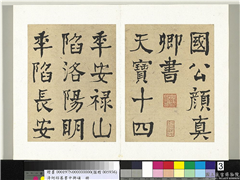 國公顏真
卿書
天寶十四
秊安禄山
陷洛陽明
秊陷長安